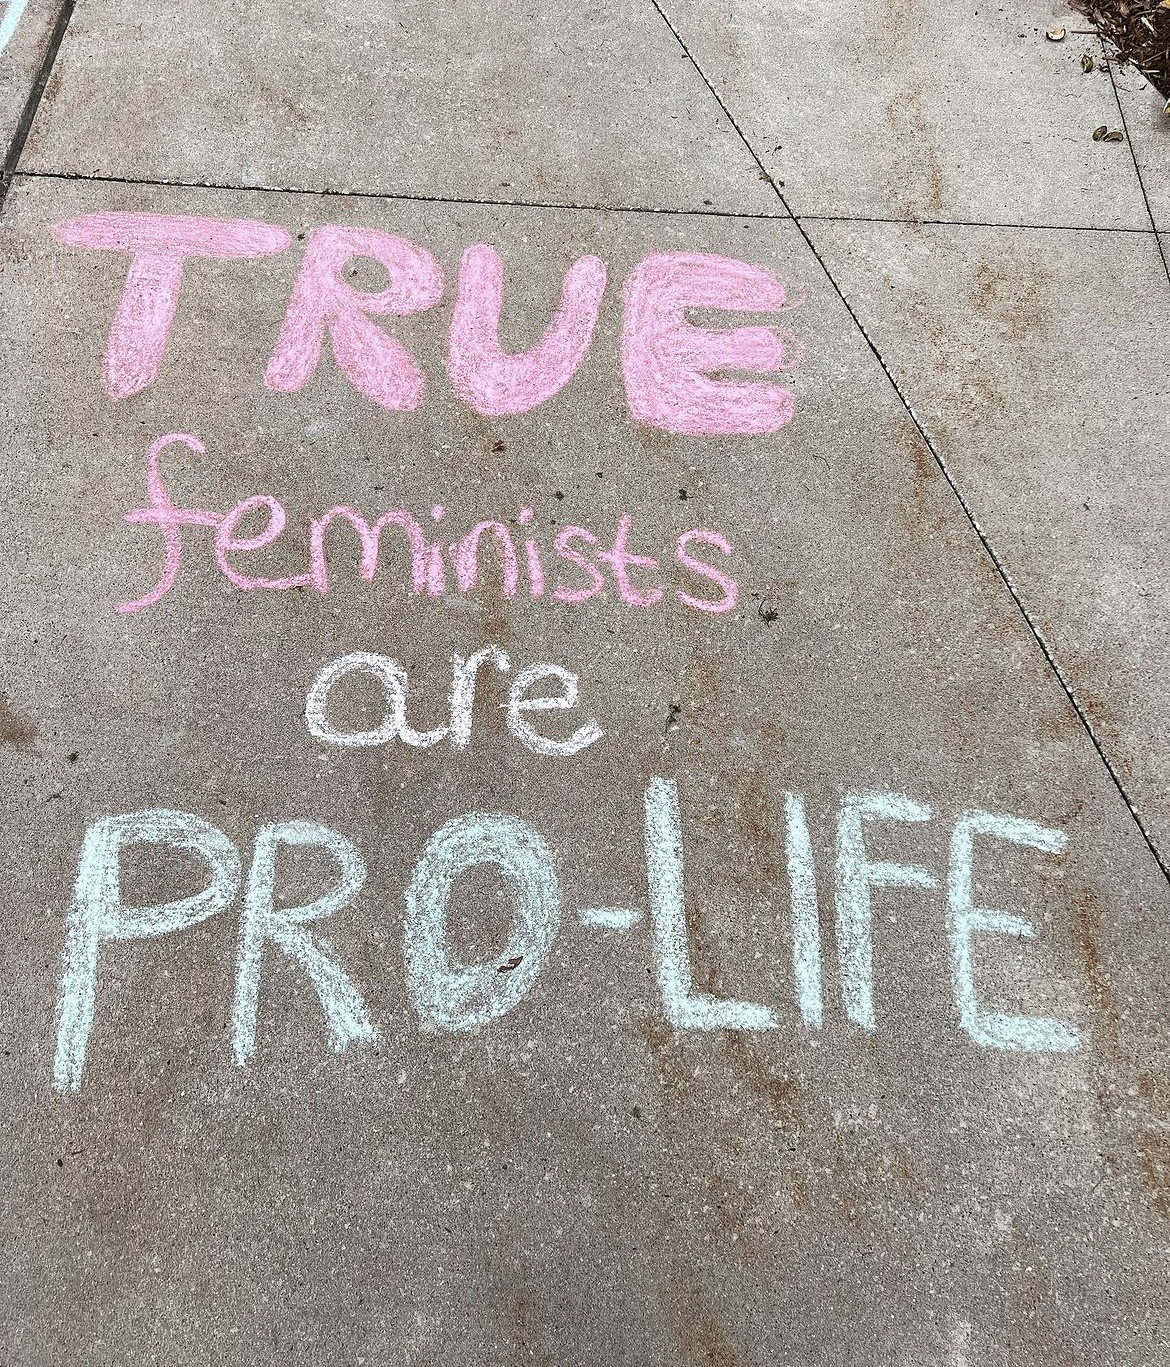 TRUE
feminists
are
PRO-LIFE